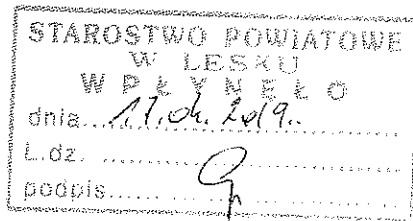 STAROSTWO POWIATOWE
W LESKU
WPŁYNĘŁO
dnia 11.04.2019.
L.dz.
podpis